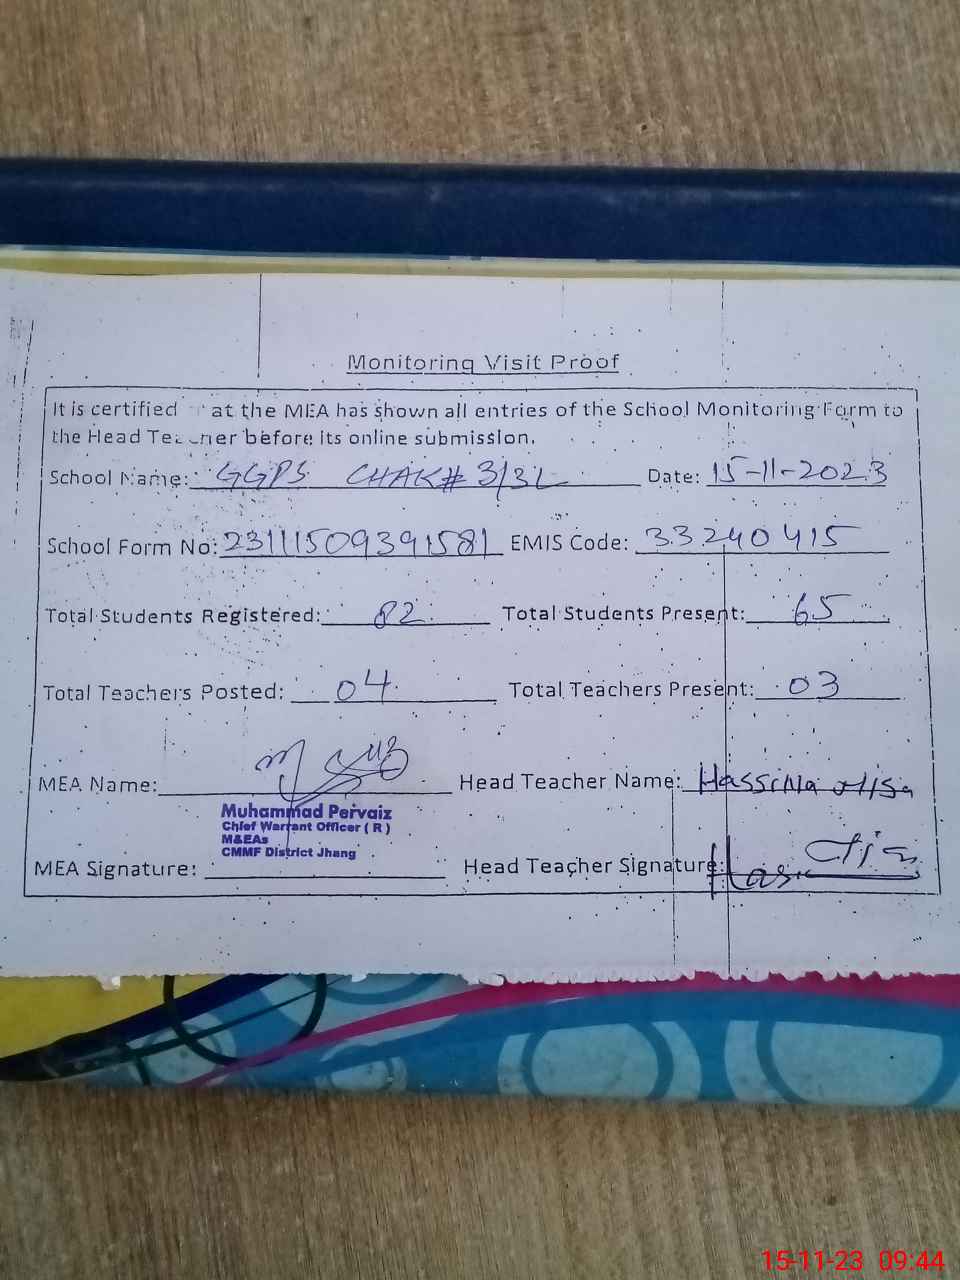 Monitoring Visit Proof
It is certified at the MEA has shown all entries of the School Monitoring Form to
the Head Teacher before its online submission.
School Name: GGPS CHAK# 3/3L Date: 15-11-2023
School Form No: 23111509391581 EMIS Code: 33240415
Total Students Registered: 82 Total Students Present: 65
Total Teachers Posted: 04 Total Teachers Present: 03
MEA Name: Head Teacher Name: Hassina
Muhammad Pervaiz
Chief Warrant Officer ( R )
M&EAs
CMMF District Jhang
MEA Signature: Head Teacher Signature:
15-11-23 09:44